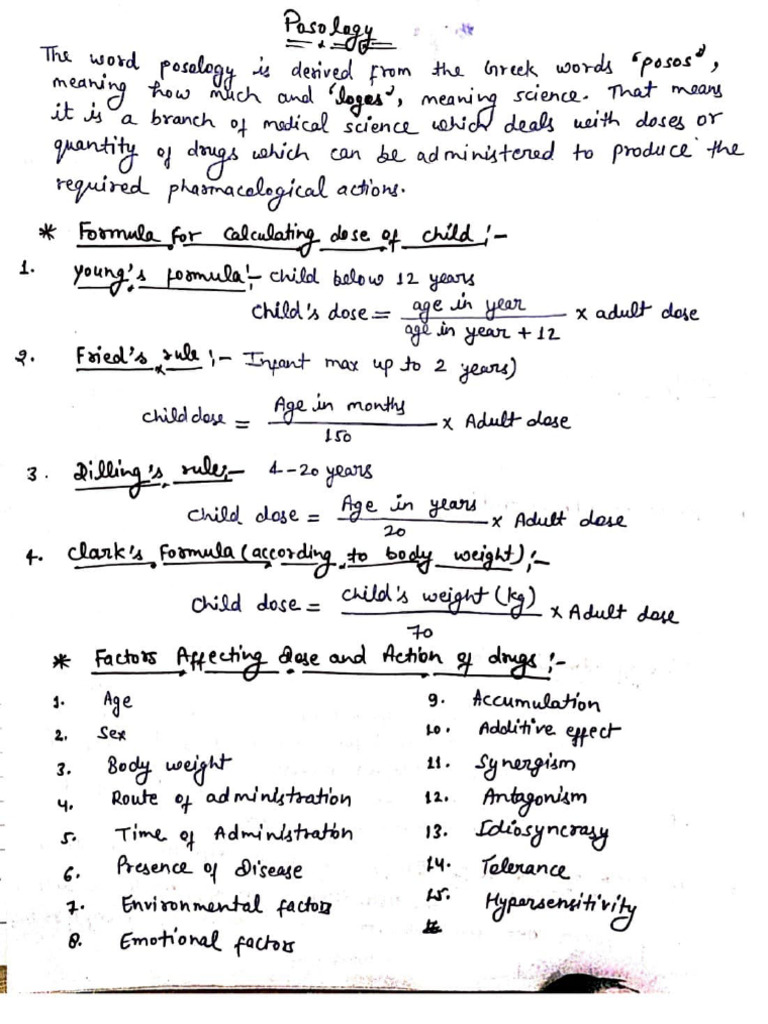 Posology
The word posology is derived from the Greek words "posos",
meaning how much and 'logos', meaning science. That means
it is a branch of medical science which deals with doses or
quantity of drugs which can be administered to produce the
required pharmacological actions.
* Formula for calculating dose of child :-
1. Young's formula :- child below 12 years
child's dose = age in year / age in year + 12 x adult dose
2. Fried's rule :- Infant max up to 2 years)
child dose = Age in months / 150 x Adult dose
3. Dilling's rule :- 4-20 years
child dose = Age in years / 20 x Adult dose
4. Clark's Formula (according to body weight) :-
child dose = child's weight (kg) / 70 x Adult dose
* Factors Affecting dose and Action of drugs :-
1. Age
2. Sex
3. Body weight
4. Route of administration
5. Time of Administration
6. Presence of Disease
7. Environmental factors
8. Emotional factors
9. Accumulation
10. Additive effect
11. Synergism
12. Antagonism
13. Idiosyncrasy
14. Tolerance
15. Hypersensitivity